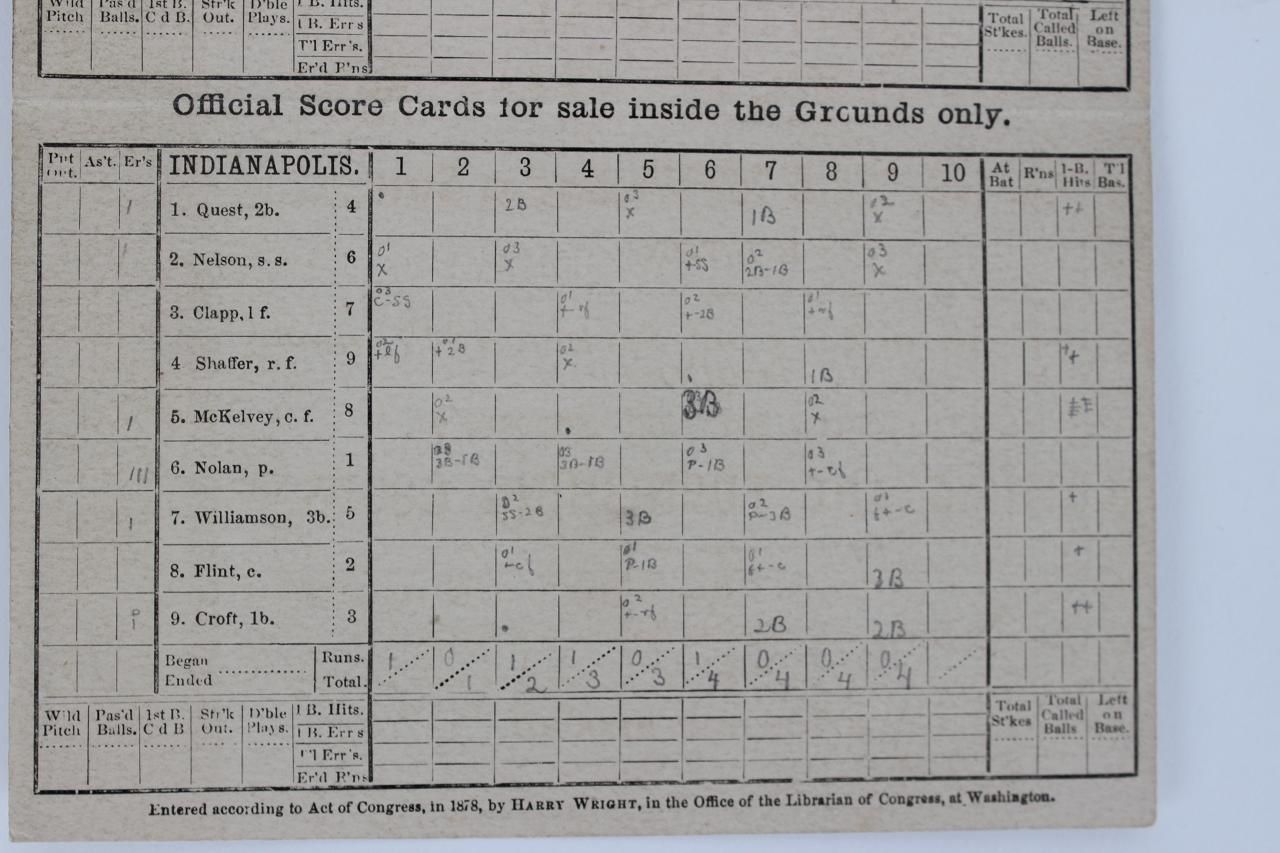 Wild Pitch Pas'd Balls. 1st B. C d B. Str'k Out. D'ble Plays. 1 B. Hits.
1 B. Err s
T'l Err's.
Er'd R'ns
Total St'kes. Total Called Balls. Left on Base.
Official Score Cards for sale inside the Grounds only.
Put Out. As't. Er's INDIANAPOLIS. 1 2 3 4 5 6 7 8 9 10 At Bat R'ns 1-B. Hits T'l Bas.
1. Quest, 2b. 4 2B 03 X 1B 02 X ++
2. Nelson, s. s. 6 01 X 03 X 01 +-SS 02 2B-1B 03 X
3. Clapp, l f. 7 03 C-SS 01 +-rf 02 +-2B 01 +-rf
4 Shaffer, r. f. 9 02 +lf 01 +2B 02 X 1B ++
5. McKelvey, c. f. 8 02 X 3B 02 X
6. Nolan, p. 1 3B-1B 03 3B-1B 03 P-1B 03 +-cf
7. Williamson, 3b. 5 02 SS-2B 3B 02 P-3B 01 f+-c +
8. Flint, c. 2 01 +-cf 01 P-1B 01 f+-c 3B +
9. Croft, 1b. 3 02 +-rf 2B 2B ++
Began Runs. 1 0 1 1 0 1 0 0 0
Ended Total. 1 2 3 3 4 4 4 4
Wild Pitch Pas'd Balls. 1st B. C d B Str'k Out. D'ble Plays. 1 B. Hits.
1 B. Err s
T'l Err's.
Er'd R'ns
Total St'kes Total Called Balls Left on Base.
Entered according to Act of Congress, in 1878, by HARRY WRIGHT, in the Office of the Librarian of Congress, at Washington.